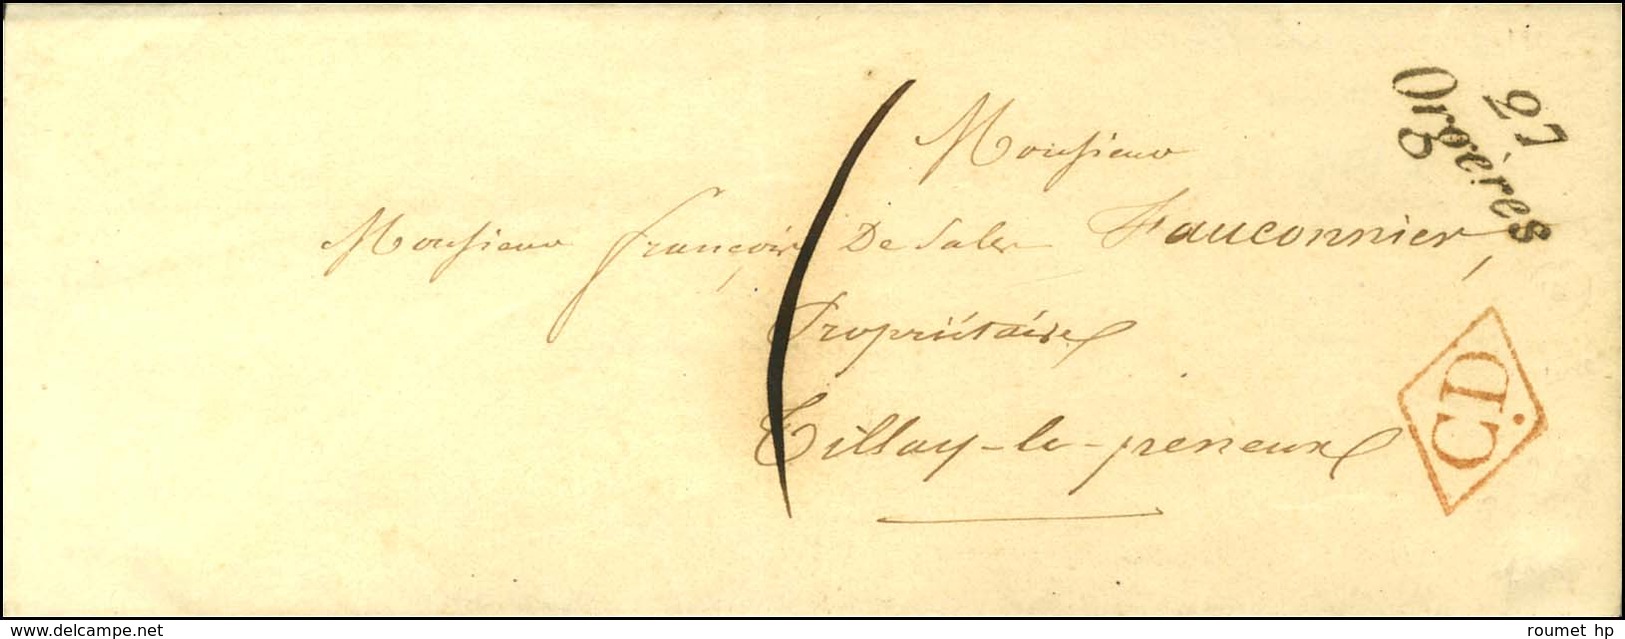 27
Orgères
Monsieur
Monsieur françois De Sales Fauconnier,
Propriétaire
Tillay-le-peneux
C.D.
www.delcampe.net
roumet hp